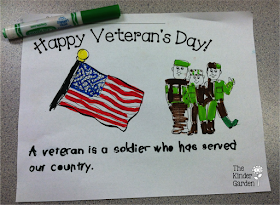 Happy Veteran's Day!
A veteran is a soldier who has served
our country.
The
Kinder
Garden